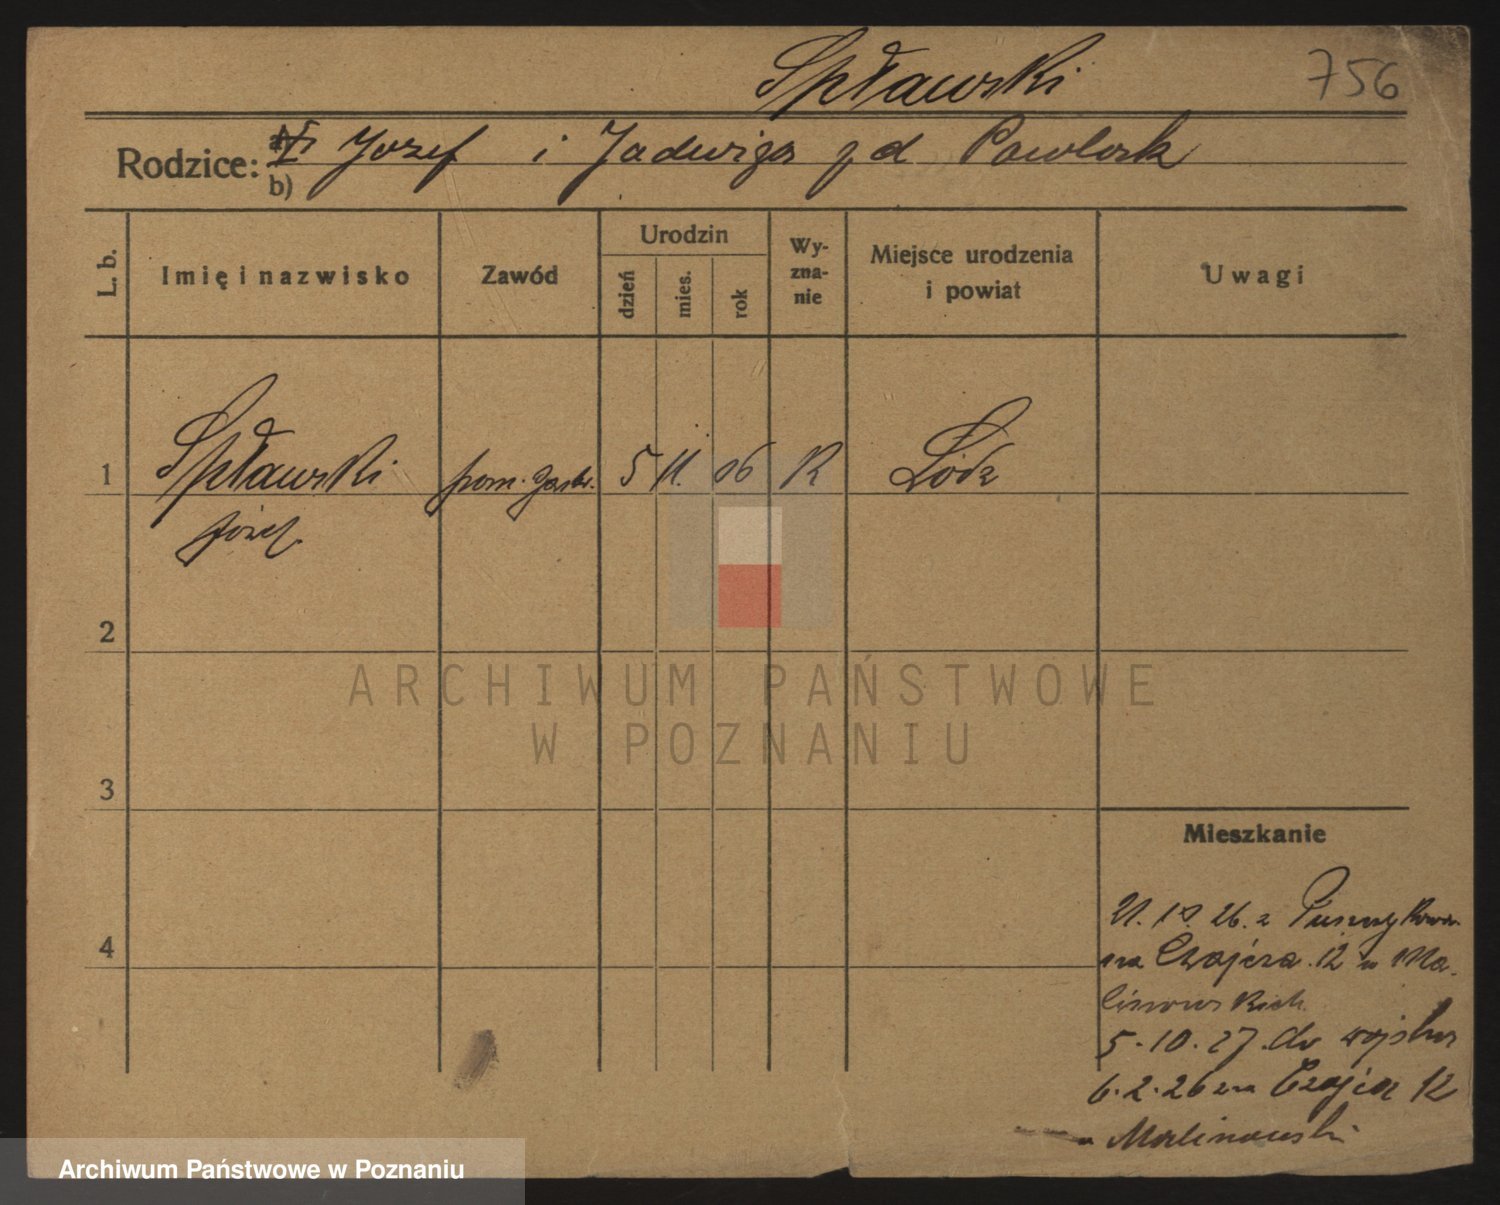 Spławski 756
Rodzice: Józef i Jadwiga z d Pawlak
b)
L. b. Imię i nazwisko Zawód Urodzin dzień mies. rok Wyznanie Miejsce urodzenia i powiat Uwagi
1 Spławski pom. 5 11. 06 K Łódź
Józef
2
ARCHIWUM PAŃSTWOWE
W POZNANIU
3
Mieszkanie
4
21. 26. z
na Czajcza 12 u Ma-
linowskich
5.10.27. do wojska
6.2.26 na Czajcza 12
u Malinowski
Archiwum Państwowe w Poznaniu